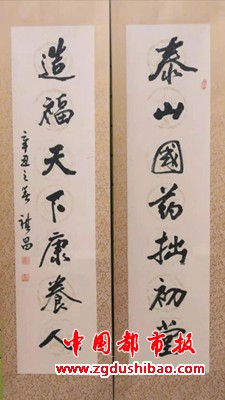 泰山國药拙初堂
造福天下康養人
辛丑之春 昌
中國都市报
www.zgdushibao.com